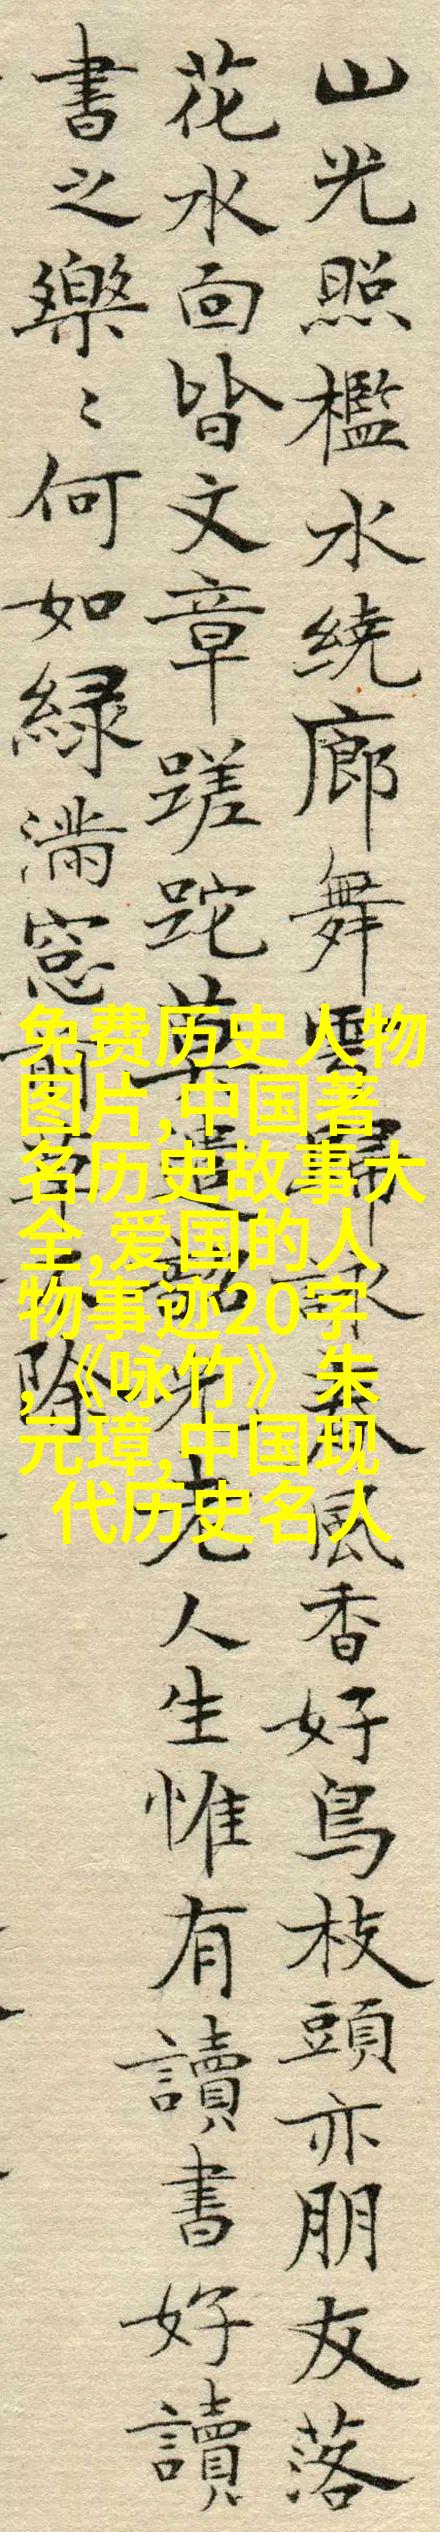 山光照檻水繞廊舞雲歸詠春風香好鳥枝頭亦朋友落
花水面皆文章蹉跎莫遣韶光老人生惟有讀書好讀
書之樂〻何如緑滿窓前草不除
免费历史人物
图片,中国著
名历史故事大
全,爱国的人
物事迹20字
,《咏竹》 朱
元璋,中国现
代历史名人